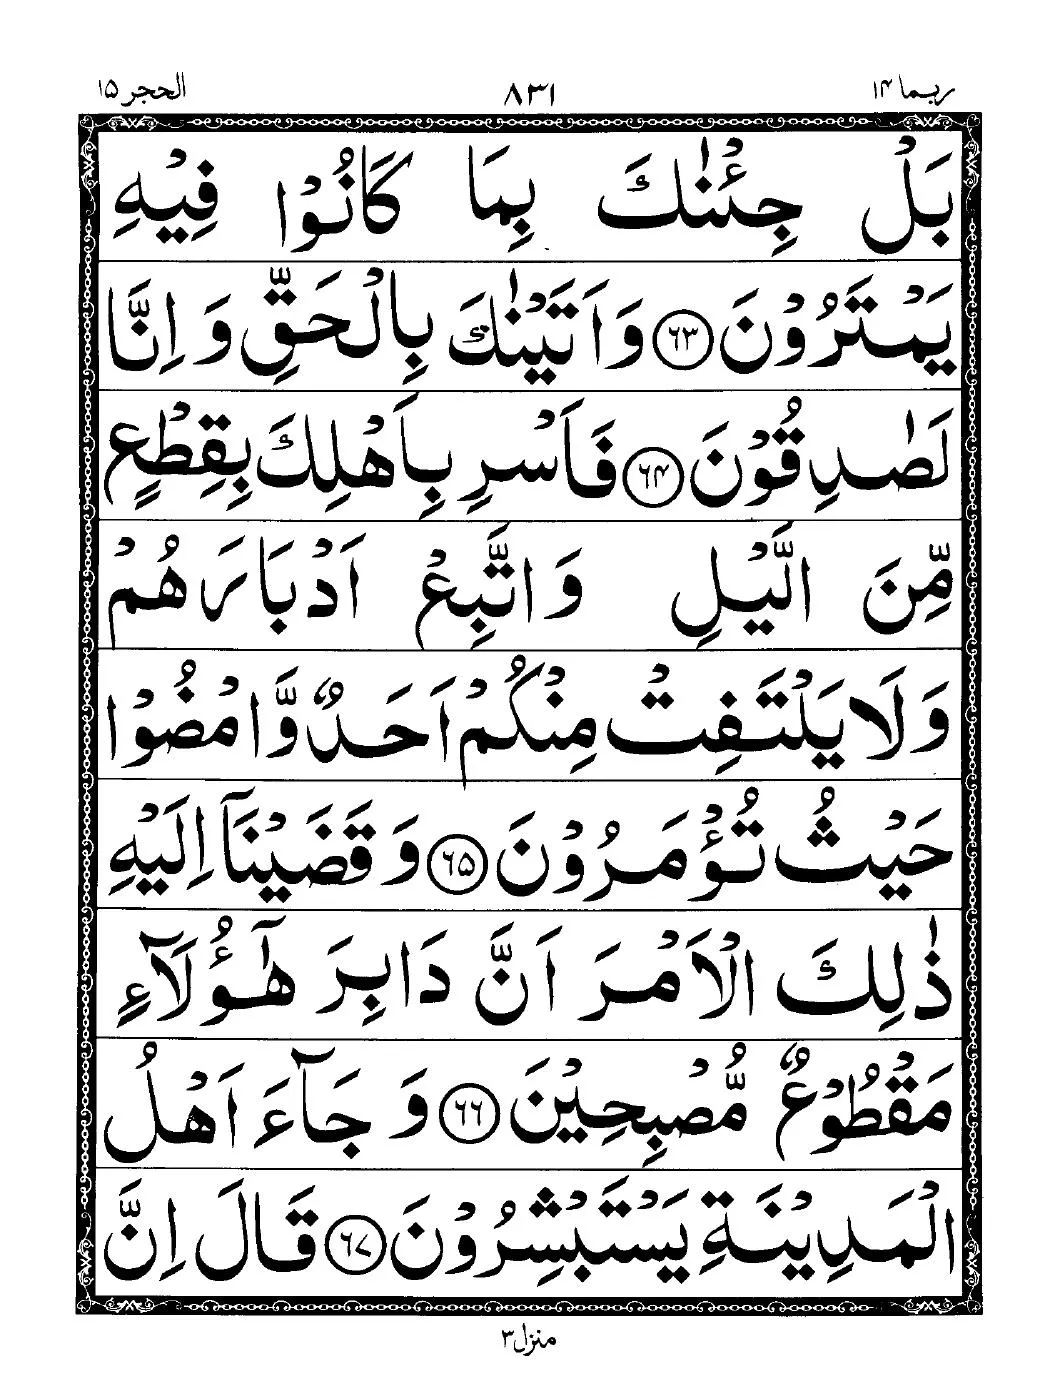 ربما ۱۴ ۸۳۱ الحجر ۱۵
بَلْ جِئْنٰكَ بِمَا كَانُوْا فِيْهِ
يَمْتَرُوْنَ ۶۳ وَاَتَيْنٰكَ بِالْحَقِّ وَاِنَّا
لَصٰدِقُوْنَ ۶۴ فَاَسْرِ بِاَهْلِكَ بِقِطْعٍ
مِّنَ الَّيْلِ وَاتَّبِعْ اَدْبَارَهُمْ
وَلَا يَلْتَفِتْ مِنْكُمْ اَحَدٌ وَّامْضُوْا
حَيْثُ تُؤْمَرُوْنَ ۶۵ وَقَضَيْنَآ اِلَيْهِ
ذٰلِكَ الْاَمْرَ اَنَّ دَابِرَ هٰٓؤُلَآءِ
مَقْطُوْعٌ مُّصْبِحِيْنَ ۶۶ وَجَآءَ اَهْلُ
الْمَدِيْنَةِ يَسْتَبْشِرُوْنَ ۶۷ قَالَ اِنَّ
منزل ۳